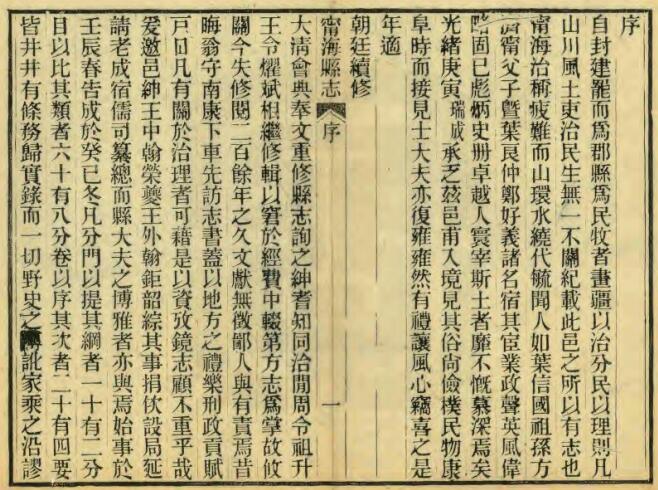 序
自封建罷而爲郡縣爲民牧者畫疆以治分民以理則凡
山川風土吏治民生無一不關紀載此邑之所以有志也
甯海治稱疲難而山環水繞代毓聞人如葉信國祖孫方
濟甯父子曁葉艮仲鄭好義諸名宿其宦業政聲英風偉
畧固已彪炳史册卓越人寰宰斯土者靡不慨慕深焉矣
光緒庚寅瑞成承乏茲邑甫入境見其俗尙儉樸民物康
阜時而接見士大夫亦復雍雍然有禮讓風心竊喜之是
年適
朝廷續修
甯海縣志 序 一
大淸會典奉文重修縣志詢之紳耆知同治閒周令祖升
王令燿斌相繼修輯以窘於經費中輟第方志爲掌故攸
關今失修閱二百餘年之久文獻無徵鄙人與有責焉昔
晦翁守南康下車先訪志書蓋以地方之禮樂刑政貢賦
戸口凡有關於治理者可藉是以資攷鏡志顧不重乎哉
爰邀邑紳王中翰榮夔王外翰鉅韶綜其事捐伙設局延
請老成宿儒司纂總而縣大夫之博雅者亦與焉始事於
壬辰春吿成於癸巳冬凡分門以提其綱者一十有二分
目以比其類者六十有八分卷以序其次者二十有四要
皆井井有條務歸實錄而一切野史之譌訛家乘之沿謬